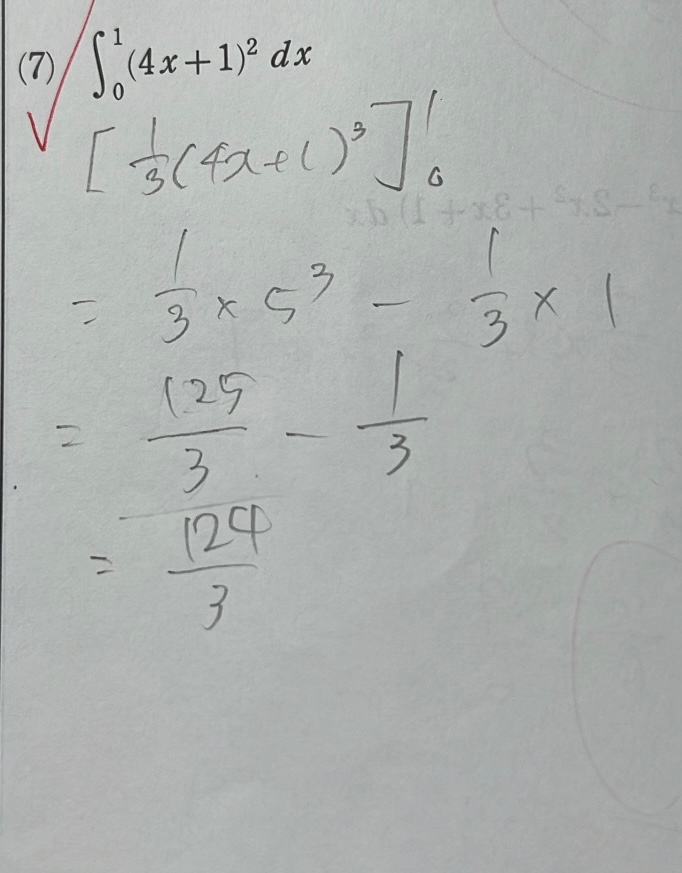 (7) ∫₀¹(4x+1)² dx
[⅓(4x+1)³]₀¹
= 1/3 × 5³ − 1/3 × 1
= 125/3 − 1/3
= 124/3